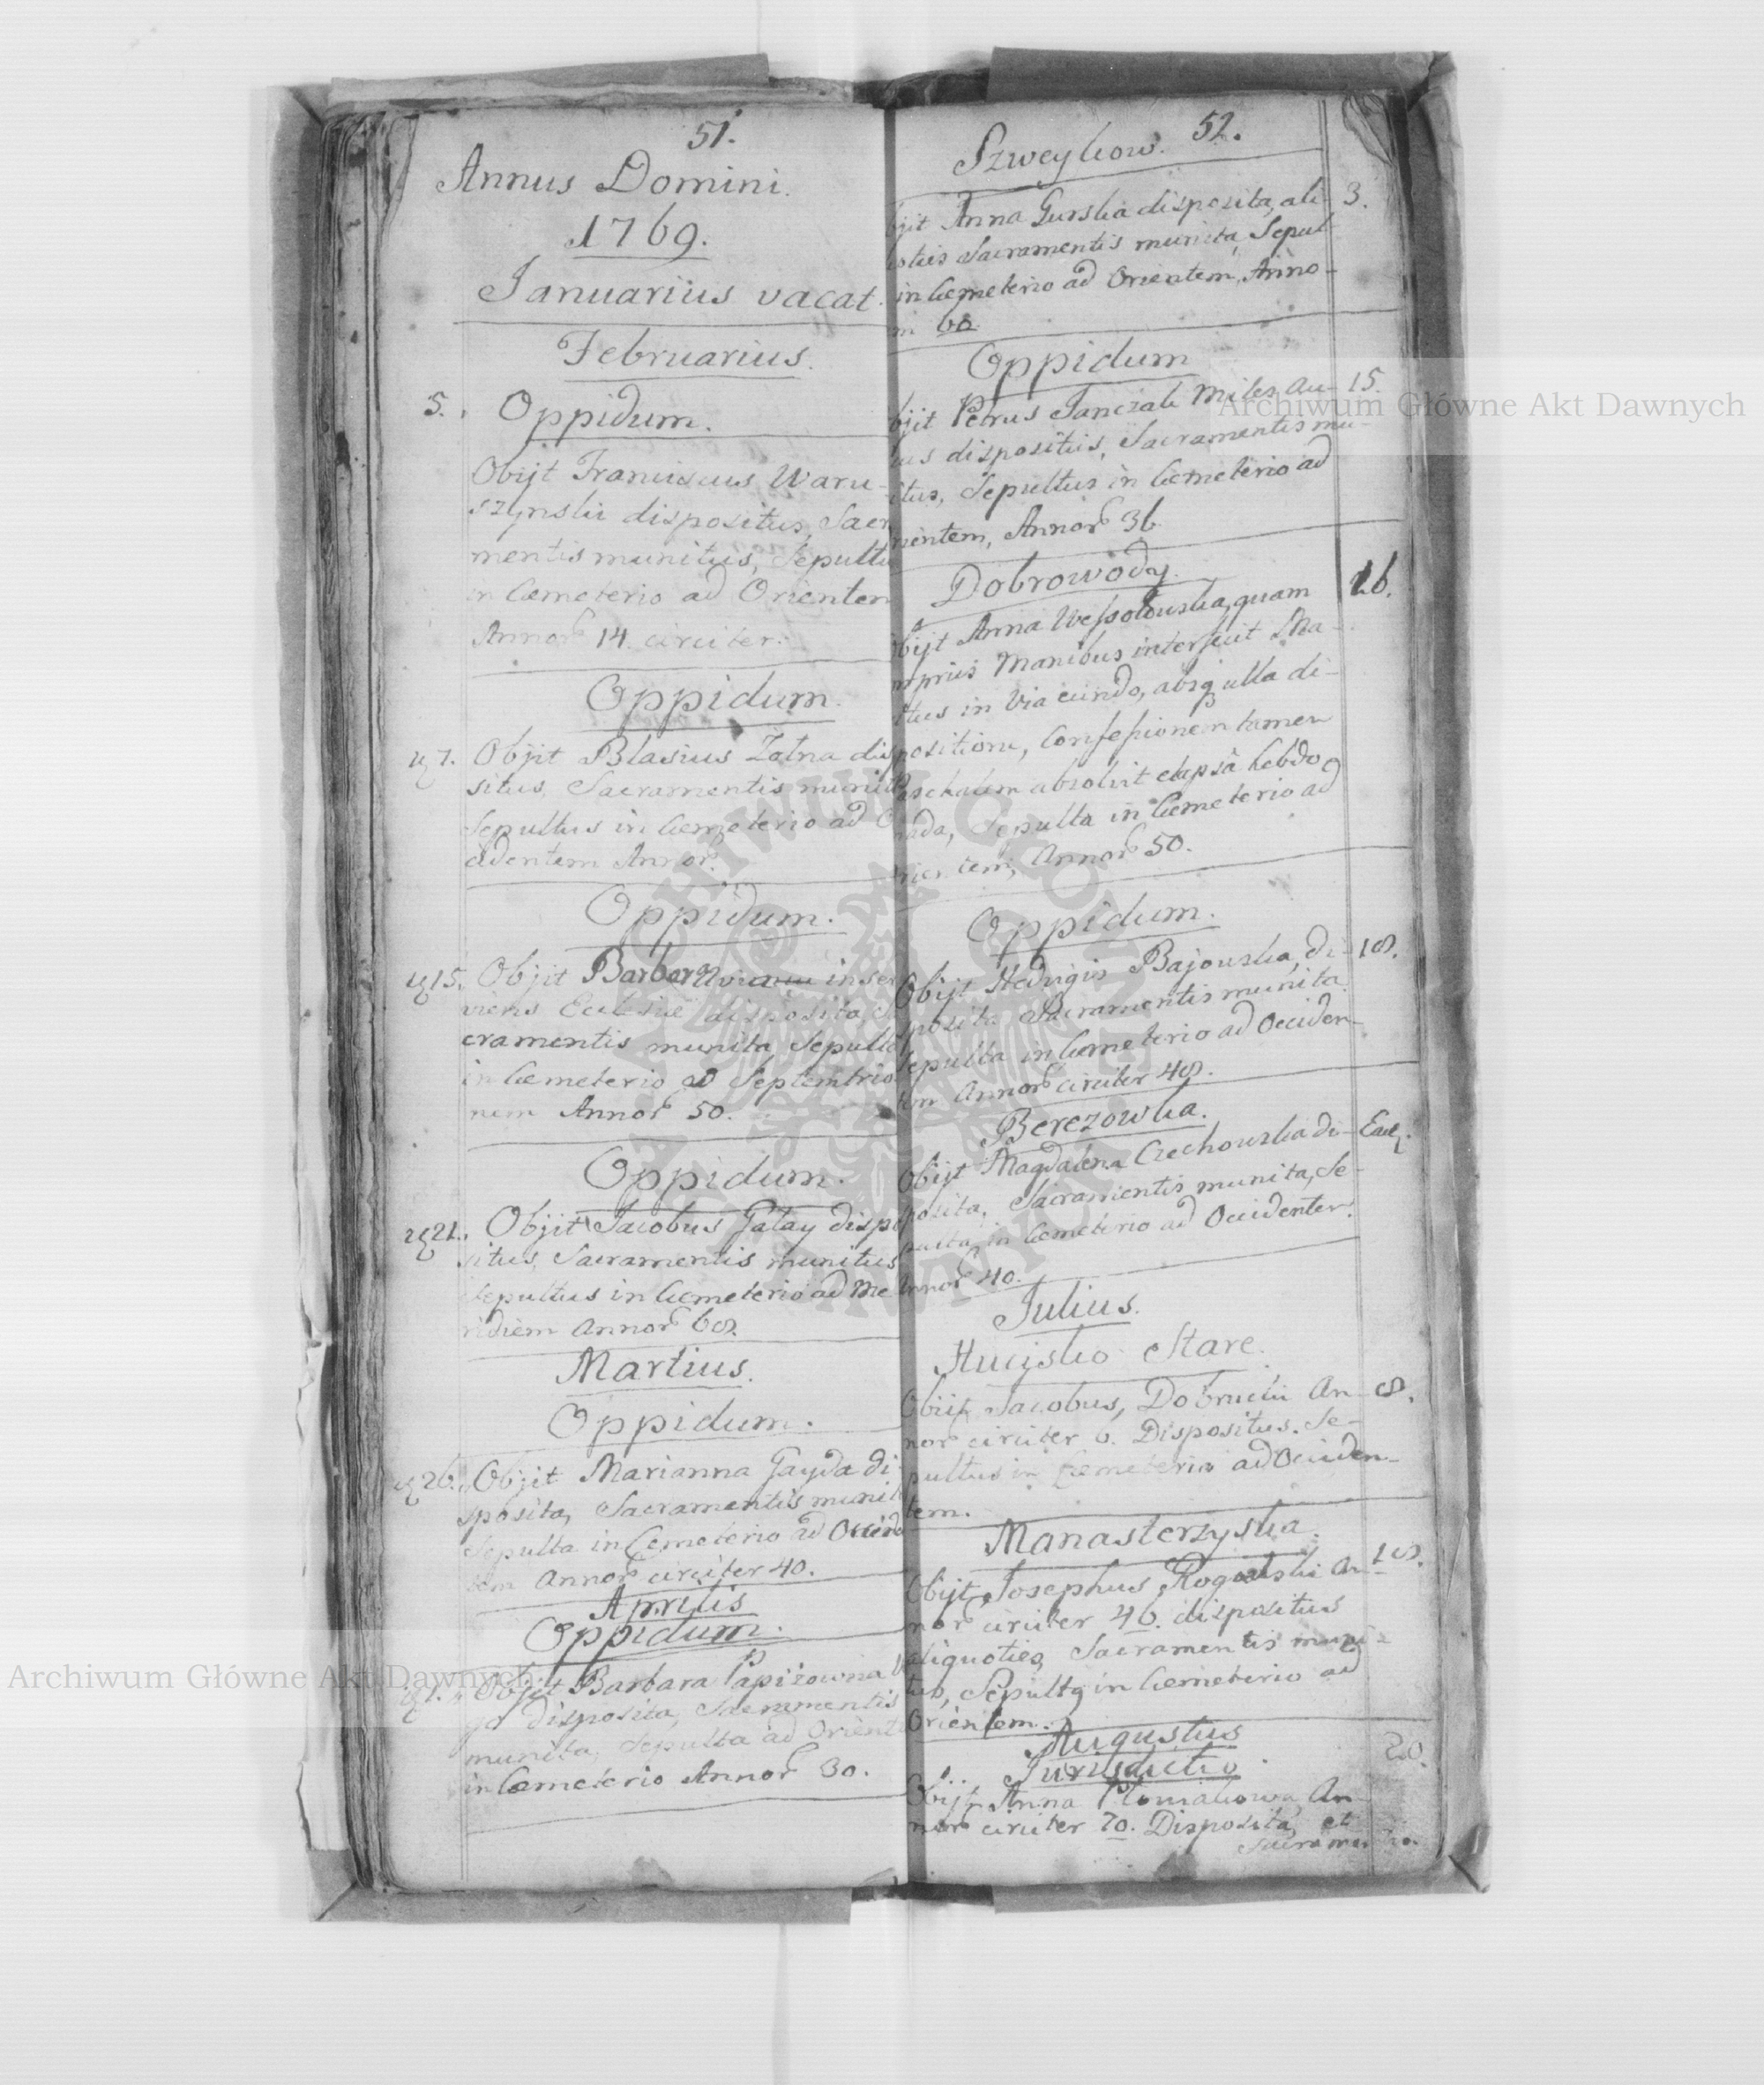 51.
Annus Domini.
1769.
Januarius vacat.
Februarius.
5. Oppidum.
Obijt Franciscus Waru-
szynski dispositus, Sacr
mentis munitus, Sepultu
in Cæmeterio ad Orientem
Annor 14. circiter.
Oppidum.
7. Objit Blasius Zotna dis
situs, Sacramentis munit
Sepultus in Cæmeterio ad O
cidentem Annor.
Oppidum.
15. Objit Barbara inser
viens Ecclesiæ disposita, S
cramentis munita Sepulta
in Cæmeterio ad Septemtrio
nem Annor 50.
Oppidum.
21. Objit Jacobus Gatay dispo
situs, Sacramentis munitus
Sepultus in Cæmeterio ad Me
ridiem Annor 68.
Martius.
Oppidum.
26. Objit Marianna Gayda di
sposita, Sacramentis munit
Sepulta in Cæmeterio ad Occid
tem Annor circiter 40.
Aprilis
Oppidum.
Objit Barbara Papizowna
disposita, Sacramentis
munita, Sepulta ad Orient
in Cæmeterio Annor 30.
52.
Szweykow.
bjit Anna Gurska disposita, ali- 3.
Sacramentis munita, Sepul-
in Cæmeterio ad Orientem, Anno-
60.
Oppidum
bjit Petrus Janczak Miles Au- 15.
us dispositus, Sacramentis mu-
itus, Sepultus in Cæmeterio ad
rientem, Annor 36
Dobrowody.
bijt Anna Wessolowska, quam 26.
propriis Manibus interfuit Ma-
itus in Via eundo, absq ulla di-
positione, Confessionem tamen
Paschalem absolvit elapsa hebdo
mada, Sepulta in Cæmeterio ad
rientem, Annor 50.
Oppidum.
Objit Hedvigis Bajowska, di- 18.
sposita Sacramentis munita
Sepulta in Cæmeterio ad Occiden-
tem Annor circiter 48.
Berezowka.
Objit Magdalena Czechowska di- Ead
sposita, Sacramentis munita, Se-
pulta in Cæmeterio ad Occidentem.
Annor 40.
Julius.
Hucisko Stare.
Obijt Jacobus, Dobrucki An- 8.
nor circiter 6. Dispositus. Se-
pultus in Cæmeterio ad Occiden-
tem.
Manasterzyska.
Obijt Josephus Rogalski An- 18.
nor circiter 46. dispositus
aliquoties, Sacramentis muni-
tus, Sepultq in Cæmeterio ad
Orientem.
Augustus
Jurisdictio. 20.
Obijt Anna An
nor circiter 70. Disposita, et
Sacramentis
Archiwum Główne Akt Dawnych
Archiwum Główne Akt Dawnych
ARCHIWUM GŁÓWNE AKT DAWNYCH